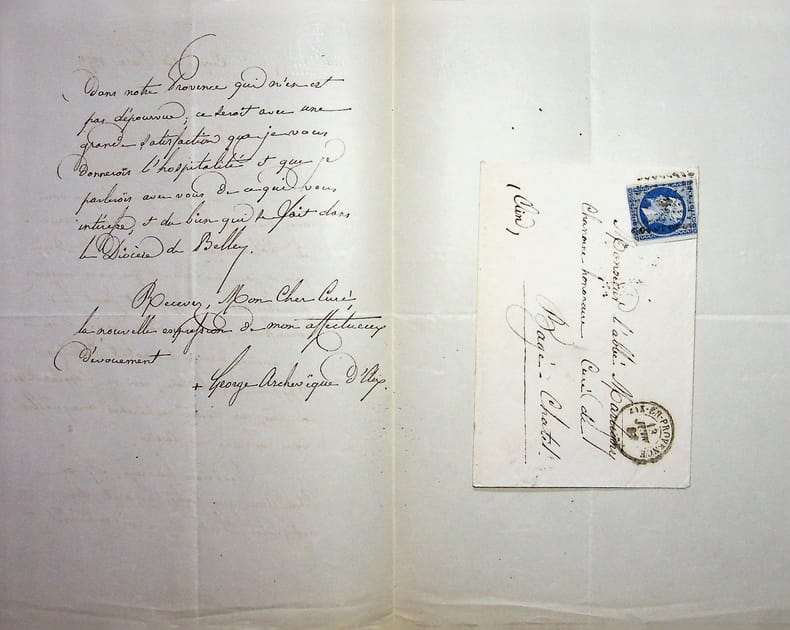 Dans notre Provence qui n'en est
pas dépourvue; ce seroit avec une
grande satisfaction que je vous
donnerois l'hospitalité et que je
parlerois avec vous de ce qui vous
intéresse, et du bien qui se fait dans
le Diocèse de Belley.
Recevez, Mon Cher Curé,
la nouvelle expression de mon affectueux
dévouement
+ George Archevêque d'Aix.
Monsieur l'abbé
Chanoine honoraire Curé de
Bagé-Chatel.
(Ain)
AIX-EN-PROVENCE